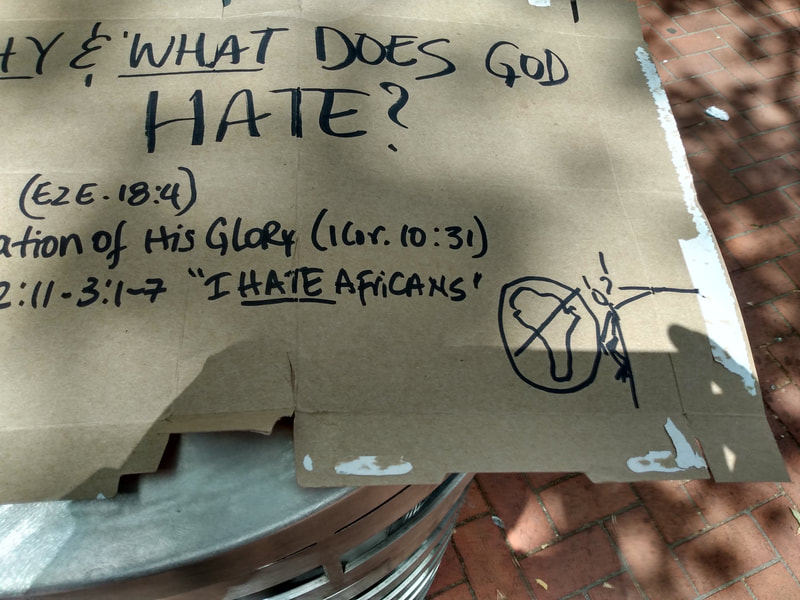 HY & 'WHAT DOES GOD
HATE?
(EZE. 18:4)
ation of His GLORY (1 Cor. 10:31)
2:11-3:1-7 "I HATE AFRICANS"